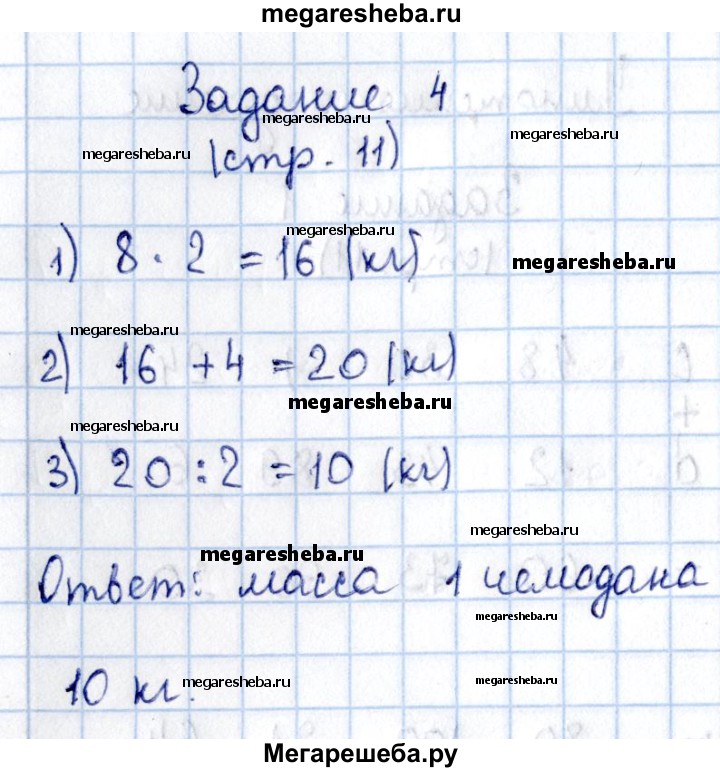 megaresheba.ru
Задание 4
megaresheba.ru
megaresheba.ru
megaresheba.ru
(стр. 11)
megaresheba.ru
1) 8 · 2 = 16 (кг)
megaresheba.ru
megaresheba.ru
2) 16 + 4 = 20 (кг)
megaresheba.ru
megaresheba.ru
3) 20 : 2 = 10 (кг)
megaresheba.ru
megaresheba.ru
Ответ: масса 1 чемодана
megaresheba.ru
10 кг.
megaresheba.ru
megaresheba.ru
Мегарешеба.ру